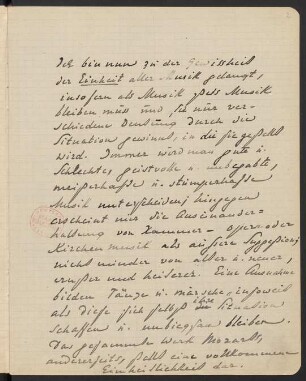 Ich bin nun zu der Gewissheit
der Einheit aller Musik gelangt,
insofern als Musik stets Musik
bleiben muss und sie nur ver-
schiedene Deutung durch die
Situation gewinnt, in die sie gestellt
wird. Immer wird man gute u.
Schlechte, geistvolle u. unbegabte,
meisterhafte u. stümperhafte
Musik unterscheiden; hingegen
erscheint mir die Auseinander-
haltung von Kammer- Opern oder
Kirchenmusik als äussere Suggestion;
nicht minder von alter u. neuer,
ernster und heiterer. Eine Ausnahme
bilden Tänze u. Märsche insoweit
als diese sich selbst ihre Situation
schaffen u. unbiegsam bleiben.
Das gesammte Werk Mozarts,
andererseits, stellt eine vollkommene
Einheitlichkeit dar.